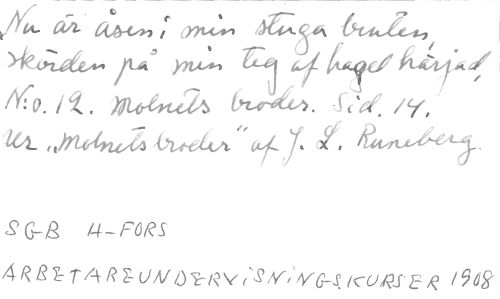 Nu är åsen i min stuga bruten,
skörden på min teg af hagel härjad,
N:o. 12. Molnets broder. Sid. 14.
ur „Molnets broder” af J. L. Runeberg.
SGB H-FORS
ARBETAREUNDERVISNINGSKURSER 1908